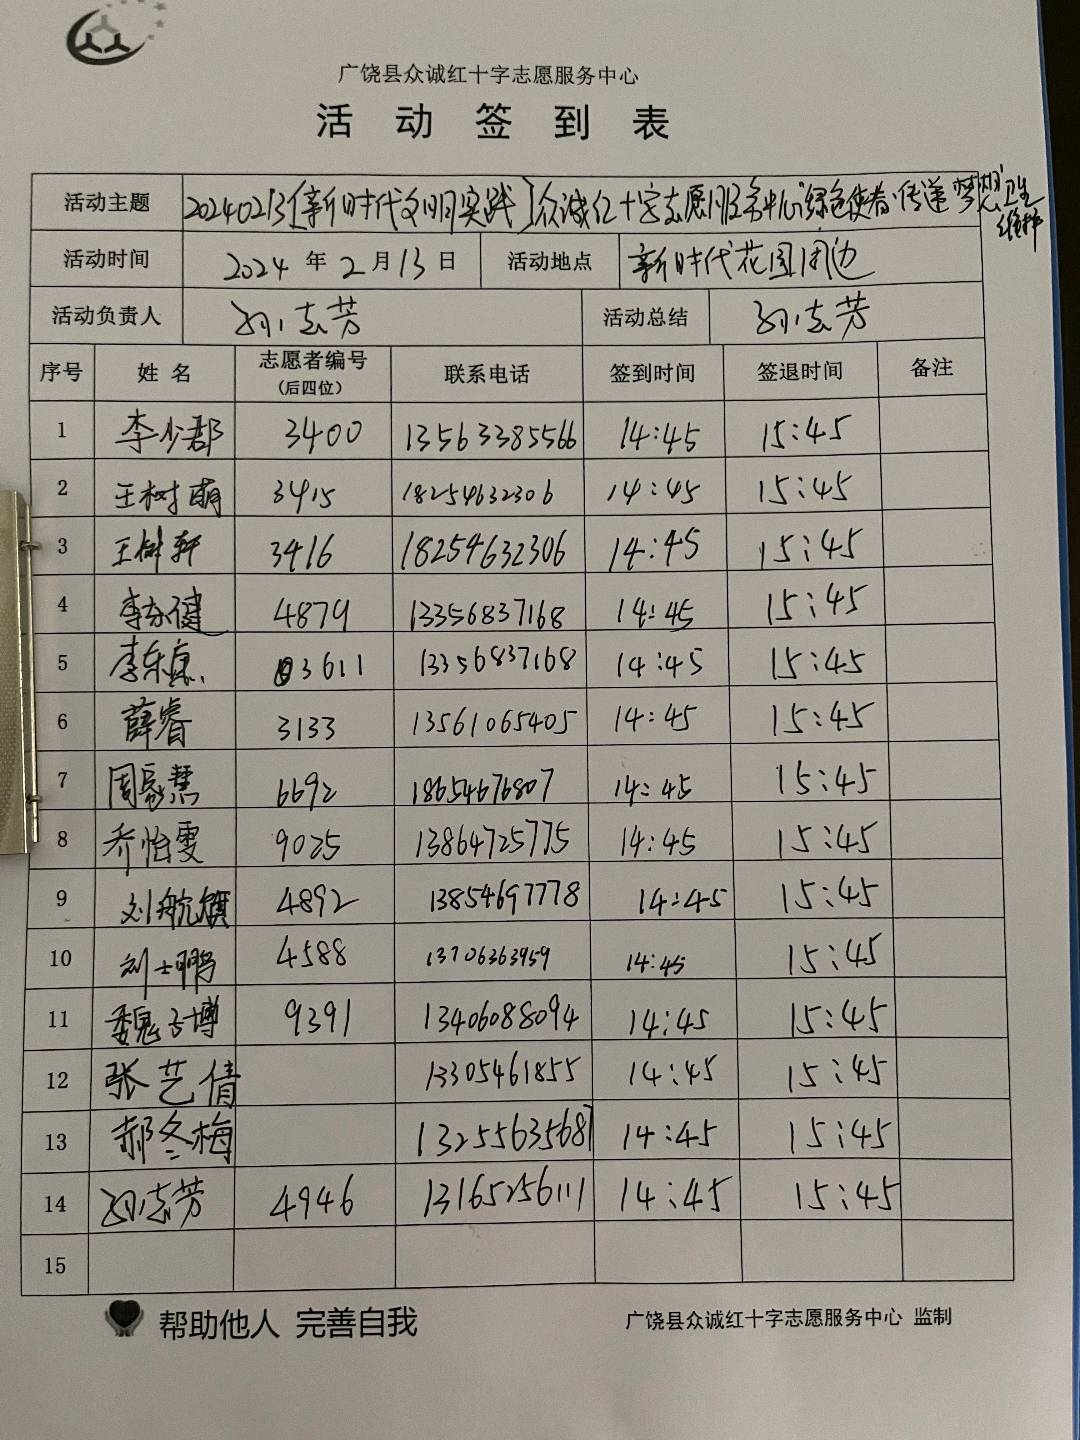 广饶县众诚红十字志愿服务中心
活 动 签 到 表
活动主题 20240213[新时代文明实践]众诚红十字志愿服务中心“绿色使者·传递梦想”卫生
维护
活动时间 2024 年 2 月 13 日 活动地点 新时代花园周边
活动负责人 孙志芳 活动总结 孙志芳
序号 姓 名 志愿者编号 联系电话 签到时间 签退时间 备注
（后四位）
1 李少郡 3400 13563385566 14:45 15:45
2 王树萌 3415 18254632306 14:45 15:45
3 王树轩 3416 18254632306 14:45 15:45
4 李永健 4879 13356837168 14:45 15:45
5 李乐康 3611 13356837168 14:45 15:45
6 薛睿 3133 13561065405 14:45 15:45
7 周慧 6692 18654676807 14:45 15:45
8 乔怡雯 9025 13864725775 14:45 15:45
9 刘航旗 4892 13854697778 14:45 15:45
10 刘士鹏 4588 13706363959 14:45 15:45
11 魏子博 9391 13406088094 14:45 15:45
12 张艺倩 13305461855 14:45 15:45
13 郝冬梅 13255635687 14:45 15:45
14 孙志芳 4946 13165256111 14:45 15:45
15
帮助他人 完善自我 广饶县众诚红十字志愿服务中心 监制